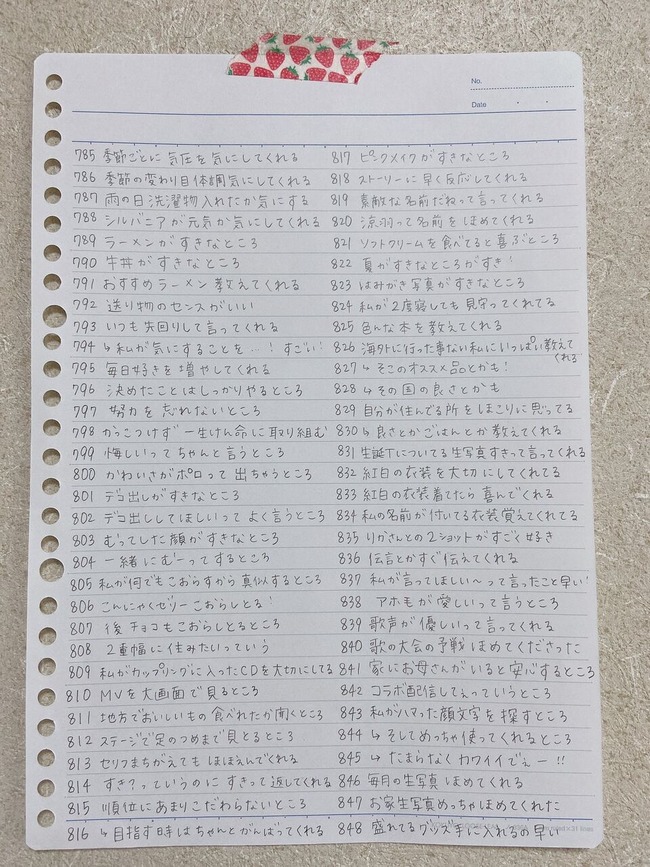 No.
Date
785 季節ごとに 気圧を気にしてくれる
786 季節の変わり目体調気にしてくれる
787 雨の日洗濯物入れたか気にする
788 シルバニアが元気か気にしてくれる
789 ラーメンがすきなところ
790 牛丼がすきなところ
791 おすすめラーメン教えてくれる
792 送り物のセンスがいい
793 いつも先回りして言ってくれる
794 ↳私が気にすることを…！すごい！
795 毎日好きを増やしてくれる
796 決めたことはしっかりやるところ
797 努力を忘れないところ
798 かっこつけず一生けん命に取り組む
799 悔しいってちゃんと言うところ
800 かわいさがポロって出ちゃうところ
801 デコ出しがすきなところ
802 デコ出ししてほしいってよく言うところ
803 むってした顔がすきなところ
804 一緒にむーってするところ
805 私が何でもこおらすから真似するところ
806 こんにゃくゼリーこおらしとる！
807 後チョコもこおらしとるところ
808 2重幅に住みたいっていう
809 私がカップリングに入ったCDを大切にしてる
810 MVを大画面で見るところ
811 地方でおいしいもの食べれたか聞くところ
812 ステージで足のつめまで見とるところ
813 セリフまちがえてもほほえんでくれる
814 すき?っていうのにすきって返してくれる
815 順位にあまりこだわらないところ
816 ↳目指す時はちゃんとがんばってくれる
817 ピンクメイクがすきなところ
818 ストーリーに早く反応してくれる
819 素敵な名前だねって言ってくれる
820 涼羽って名前をほめてくれる
821 ソフトクリームを食べてると喜ぶところ
822 夏がすきなところがすき！
823 はみがき写真がすきなところ
824 私が2度寝しても見守ってくれてる
825 色んな本を教えてくれる
826 海外に行った事ない私にいっぱい教えてくれる
827 ↳そこのオススメ品とかも！
828 ↳その国の良さとかも
829 自分が住んでる所をほこりに思ってる
830 ↳良さとかごはんとか教えてくれる
831 生誕Tについてる生写真すきって言ってくれる
832 紅白の衣装を大切にしてくれてる
833 紅白の衣装着てたら喜んでくれる
834 私の名前が付いてる衣装覚えてくれてる
835 りかさんとの2ショットがすごく好き
836 伝言とかすぐ伝えてくれる
837 私が言ってほしい〜って言ったこと早い！
838 アホ毛が愛しいって言うところ
839 歌声が優しいって言ってくれる
840 歌の大会の予戦ほめてくださった
841 家にお母さんがいると安心するところ
842 コラボ配信してぇっていうところ
843 私がハマった顔文字を探すところ
844 ↳そしてめっちゃ使ってくれるところ
845 ↳たまらなくカワイイでぇー!!
846 毎月の生写真ほめてくれる
847 お家生写真めっちゃほめてくれた
848 盛れてるグッズ手に入れるの早い